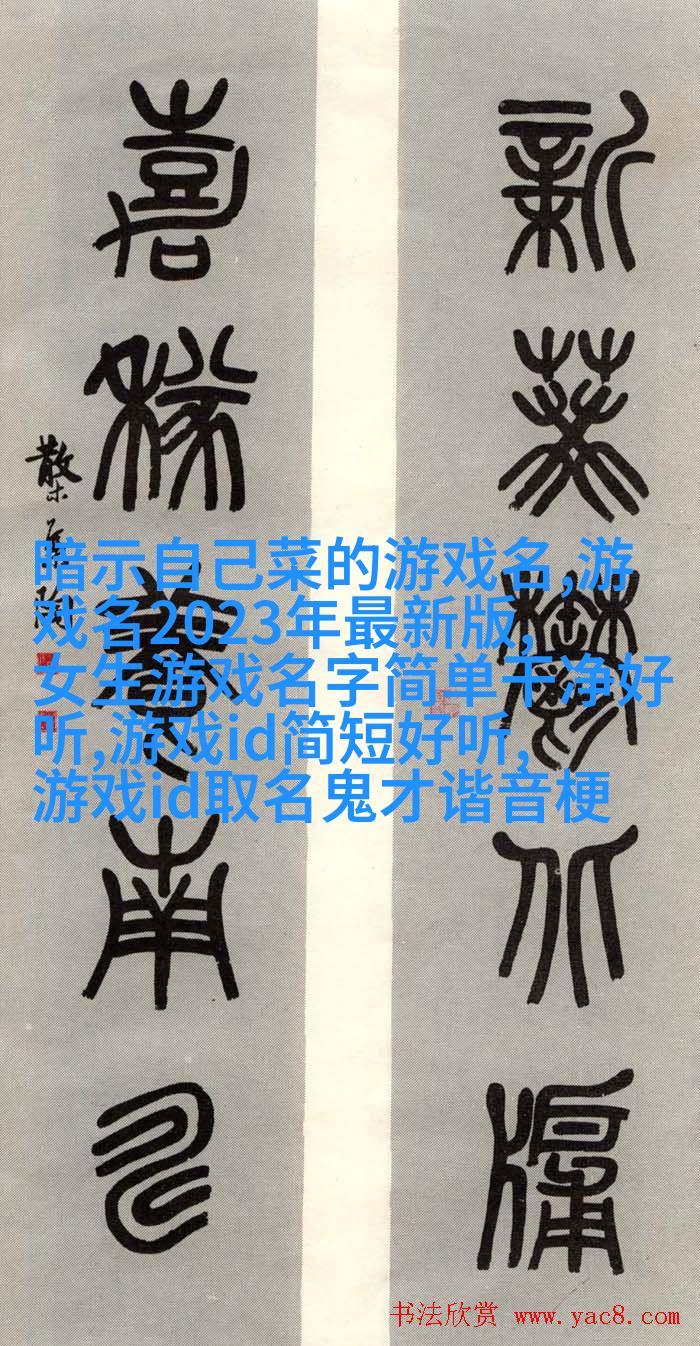 新葵鬱北牖
嘉穟養南疇
散木集陶
暗示自己菜的游戏名,游
戏名2023年最新版,
女生游戏名字简单干净好
听,游戏id简短好听,
游戏id取名鬼才谐音梗
书法欣赏 www.yac8.com